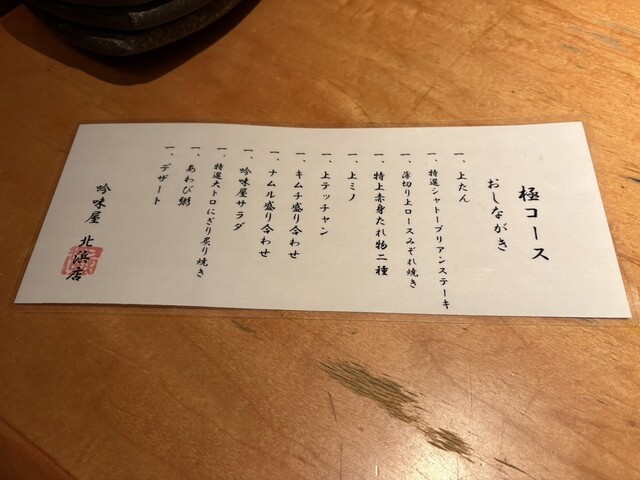 極コース
おしながき
一、上たん
一、特選シャトーブリアンステーキ
一、薄切り上ロースみぞれ焼き
一、特上赤身たれ物二種
一、上ミノ
一、上テッチャン
一、キムチ盛り合わせ
一、ナムル盛り合わせ
一、吟味屋サラダ
一、特選大トロにぎり炙り焼き
一、あわび粥
一、デザート
吟味屋 北浜店